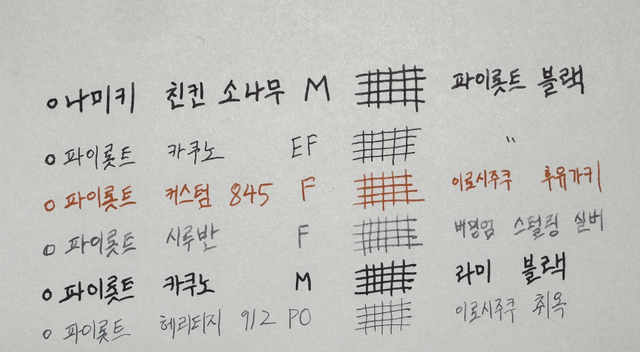 나미키 친킨 소나무 M 파이롯트 블랙
파이롯트 카쿠노 EF 〃
파이롯트 커스텀 845 F 이로시주쿠 후유가키
파이롯트 시루반 F 버밍엄 스털링 실버
파이롯트 카쿠노 M 라미 블랙
파이롯트 헤리티지 912 PO 이로시주쿠 취옥